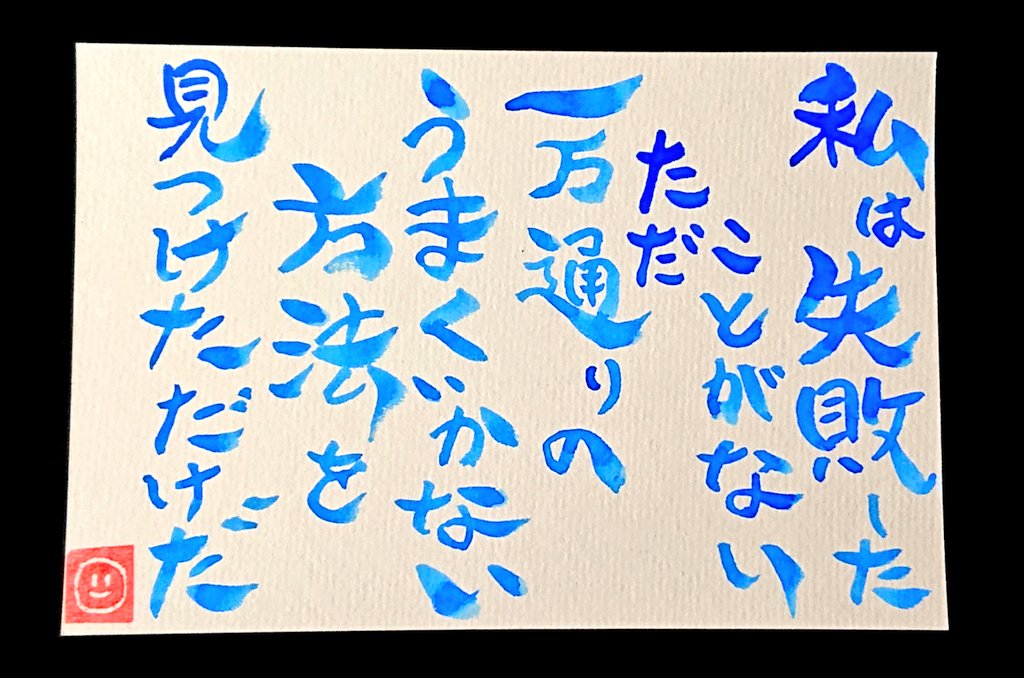 私は失敗した
ことがない
ただ
一万通りの
うまくいかない
方法を
見つけただけだ